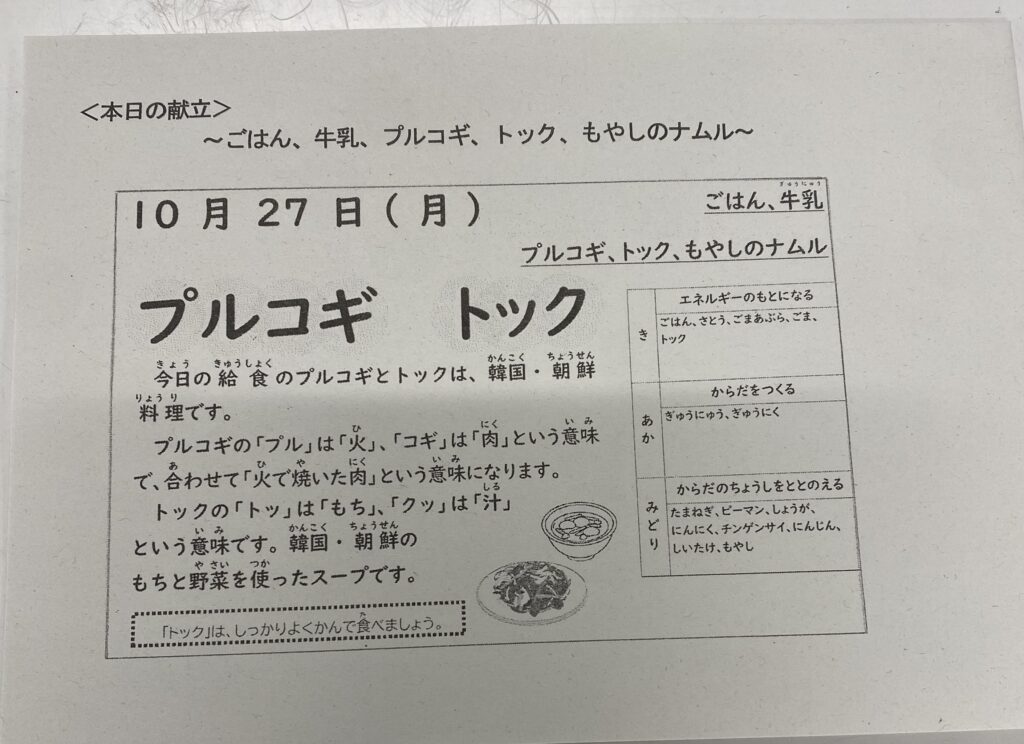 ＜本日の献立＞
～ごはん、牛乳、プルコギ、トック、もやしのナムル～
10月27日(月)
ぎゅうにゅう
ごはん、牛乳
プルコギ、トック、もやしのナムル
プルコギ　トック
きょう　きゅうしょく　かんこく　ちょうせん
今日の給食のプルコギとトックは、韓国・朝鮮
りょうり
料理です。
ひ　にく　いみ
プルコギの「プル」は「火」、「コギ」は「肉」という意味
あ　ひ　や　にく　いみ
で、合わせて「火で焼いた肉」という意味になります。
しる
トックの「トッ」は「もち」、「クッ」は「汁」
いみ　かんこく　ちょうせん
という意味です。韓国・朝鮮の
やさい　つか
もちと野菜を使ったスープです。
た
「トック」は、しっかりよくかんで食べましょう。
き
エネルギーのもとになる
ごはん、さとう、ごまあぶら、ごま、
トック
あか
からだをつくる
ぎゅうにゅう、ぎゅうにく
みどり
からだのちょうしをととのえる
たまねぎ、ピーマン、しょうが、
にんにく、チンゲンサイ、にんじん、
しいたけ、もやし